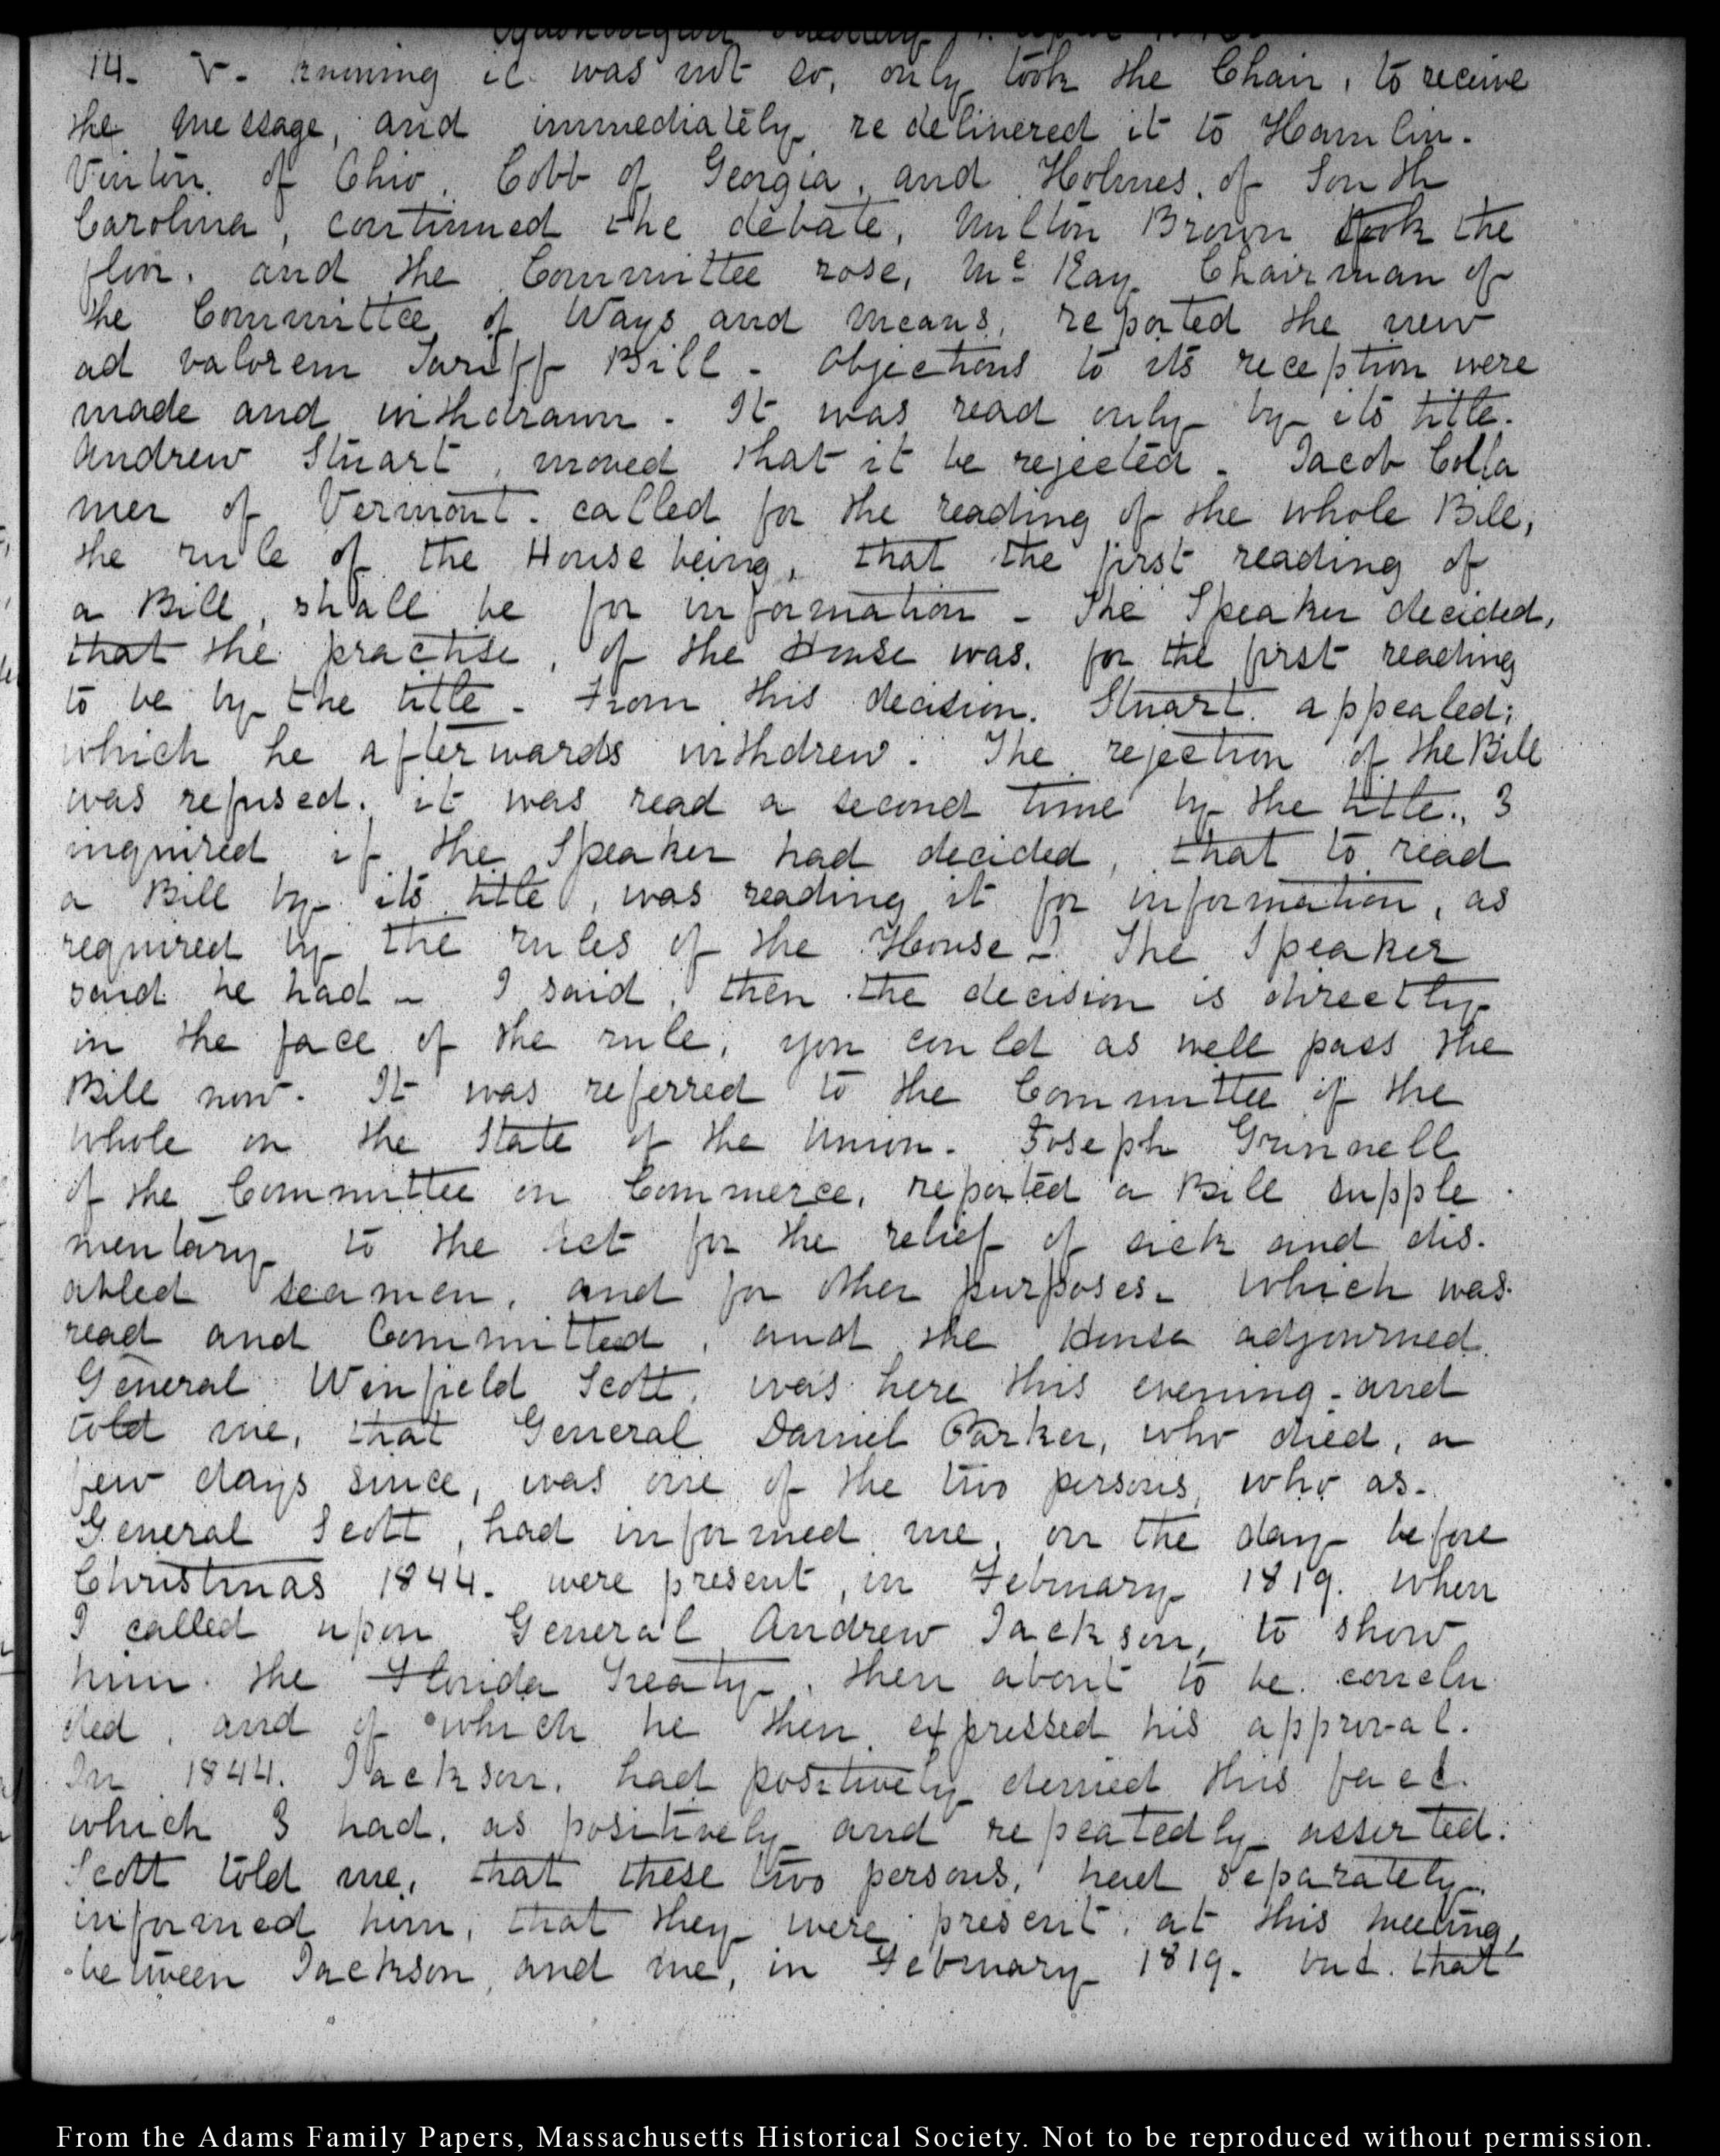 Washington Tuesday 14. April 1846.
14. V. running it was not so, only took the Chair, to receive
the message, and immediately redelivered it to Hamlin.
Vinton of Ohio, Cobb of Georgia, and Holmes, of South
Carolina, continued the debate, Milton Brown took the
floor, and the Committee rose, Mc. Kay Chairman of
the Committee of Ways and Means, reported the new
ad valorem Tariff Bill - Objections to its reception were
made and withdrawn - It was read only by its title.
Andrew Stuart, moved that it be rejected - Jacob Colla
mer of Vermont. called for the reading of the whole Bill,
the rule of the House being, that the first reading of
a Bill, shall be for information - The Speaker decided,
that the practise, of the House was, for the first reading
to be by the title - From this decision. Stuart. appealed;
which he afterwards withdrew. The rejection of the Bill
was refused. it was read a second time by the title., I
inquired if the Speaker had decided, that to read
a Bill by its title, was reading it for information, as
required by the rules of the House -? The Speaker
said he had - I said, then the decision is directly
in the face of the rule, you could as well pass the
Bill now. It was referred to the Committee of the
whole on the State of the Union. Joseph Grinnell
of the Committee on Commerce, reported a Bill supple
mentary to the Act for the relief of sick and dis-
abled seamen, and for other purposes - which was
read and Committed, and the House adjourned.
General Winfield Scott, was here this evening - and
told me, that General Daniel Parker, who died, a
few days since, was one of the two persons, who as -
General Scott, had informed me, on the day before
Christmas 1844. were present, in February 1819. when
I called upon General Andrew Jackson, to show
him the Florida Treaty, then about to be conclu
ded, and of which he then expressed his approval.
In 1844. Jackson, had positively denied this fact.
which I had, as positively and repeatedly asserted.
Scott told me, that these two persons, had separately
informed him, that they were present, at this meeting,
between Jackson, and me, in February 1819. but that
From the Adams Family Papers, Massachusetts Historical Society. Not to be reproduced without permission.